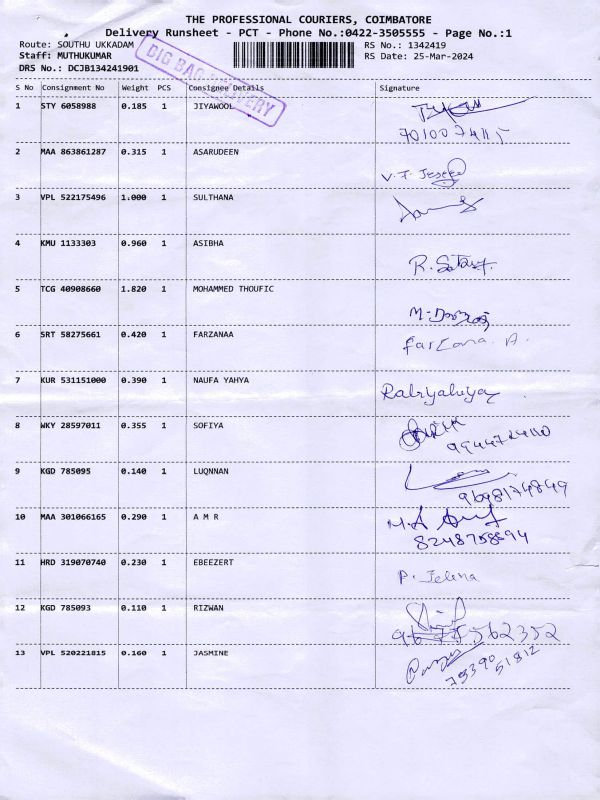 THE PROFESSIONAL COURIERS, COIMBATORE
Delivery Runsheet - PCT - Phone No.:0422-3505555 - Page No.:1
Route: SOUTHU UKKADAM RS No.: 1342419
Staff: MUTHUKUMAR RS Date: 25-Mar-2024
DRS No.: DCJB134241901
BIG BAG DELIVERY
S No Consignment No Weight PCS Consignee Details Signature
1 STY 6058988 0.185 1 JIYAWOOL
2 MAA 863861287 0.315 1 ASARUDEEN
V. J.
3 VPL 522175496 1.000 1 SULTHANA
4 KMU 1133303 0.960 1 ASIBHA
R.
5 TCG 40908660 1.820 1 MOHAMMED THOUFIC
6 SRT 58275661 0.420 1 FARZANAA
farzana. A.
7 KUR 531151000 0.390 1 NAUFA YAHYA
8 WKY 28597011 0.355 1 SOFIYA
9 KGD 785095 0.140 1 LUQNNAN
10 MAA 301066165 0.290 1 A M R
11 HRD 319070740 0.230 1 EBEEZERT
P. Jelena
12 KGD 785093 0.110 1 RIZWAN
13 VPL 520221815 0.160 1 JASMINE